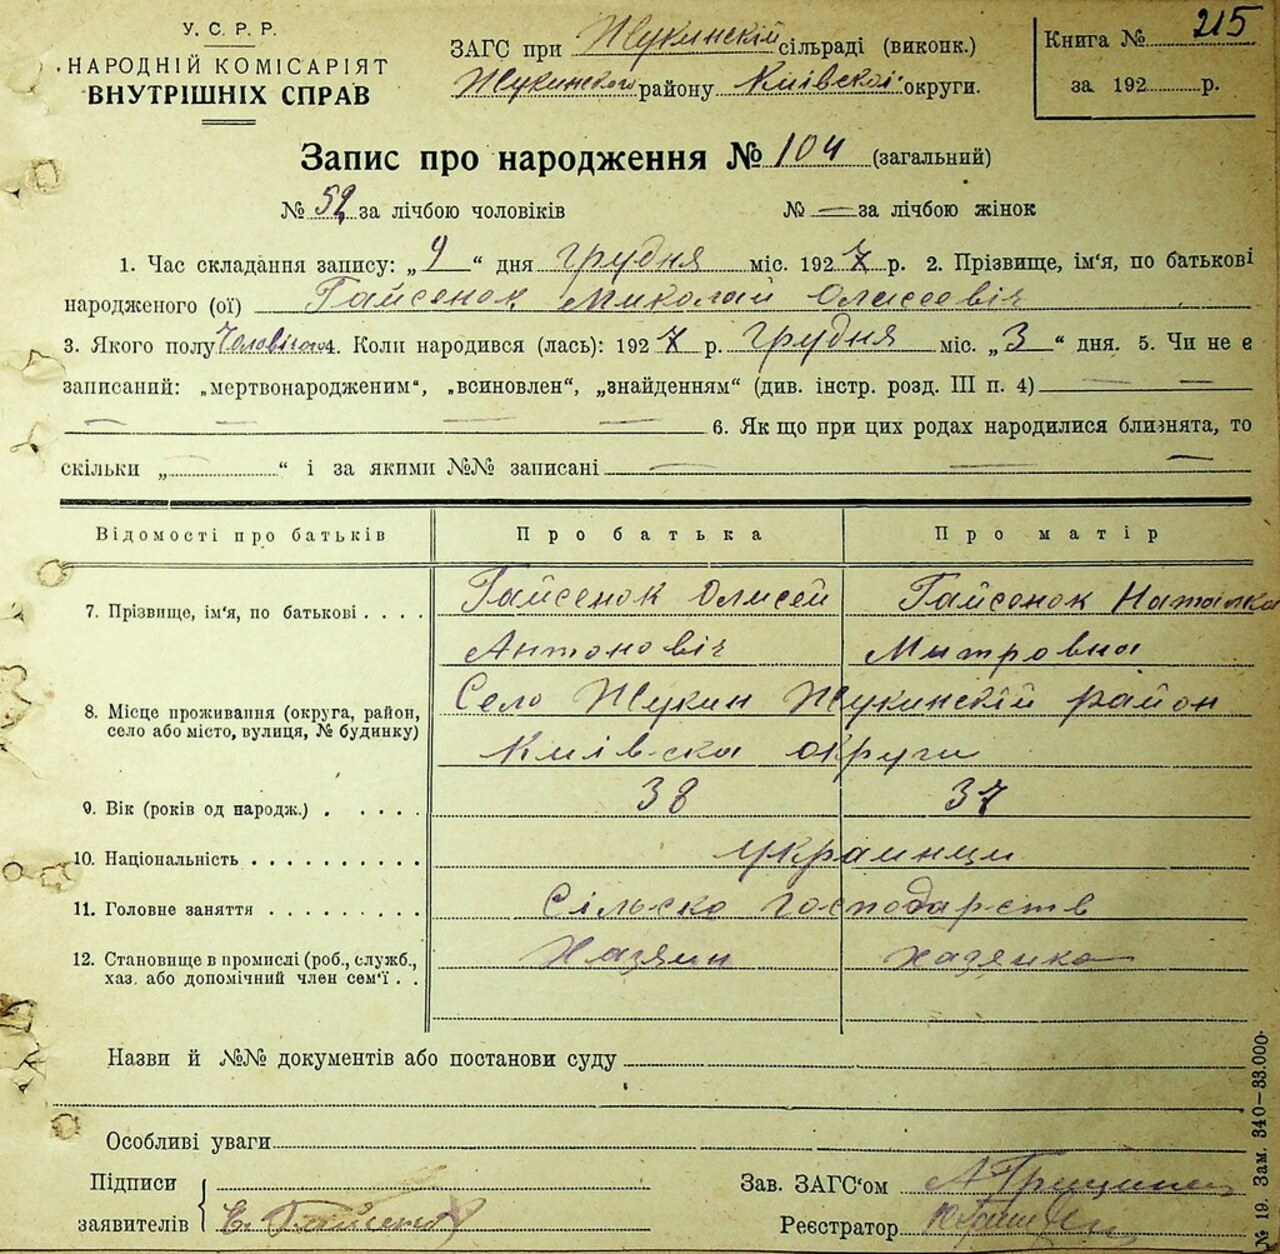 У. С. Р. Р.
НАРОДНІЙ КОМІСАРІЯТ
ВНУТРІШНІХ СПРАВ
ЗАГС при Жукинскій сільраді (виконк.)
Жукинского району Київскої округи.
Книга № 215
за 192 р.
Запис про народження № 104 (загальний)
№ 52 за лічбою чоловіків № — за лічбою жінок
1. Час складання запису: „ 9 “ дня грудня міс. 192 7 р. 2. Прізвище, ім'я, по батькові
народженого (ої) Гайсенок Миколай Олисеовіч
3. Якого полу 4. Коли народився (лась): 192 7 р. грудня міс. „ 3 “ дня. 5. Чи не є
записаний: „мертвонародженим“, „всиновлен“, „знайденням“ (див. інстр. розд. III п. 4) — —
— — — — 6. Як що при цих родах народилися близнята, то
скільки „ — “ і за якими №№ записані — — —
Відомості про батьків Про батька Про матір
7. Прізвище, ім'я, по батькові . . . . Гайсенок Олисей Гайсенок Наталка
Антоновіч Митровна
8. Місце проживання (округа, район, село або місто, вулиця, № будинку) Село Жукин Жукинскій район
Київска округи
9. Вік (років од народж.) . . . . . 38 37
10. Національність . . . . . . . . . . украинци
11. Головне заняття . . . . . . . . . Сільско господарств
12. Становище в промислі (роб., служб., хаз. або допомічний член сем'ї . . Хазяин хазяика
Назви й №№ документів або постанови суду
Особливі уваги
Підписи
заявителів Гайсенок
Зав. ЗАГС'ом
Реєстратор
№ 19. Зам. 340–33.000.